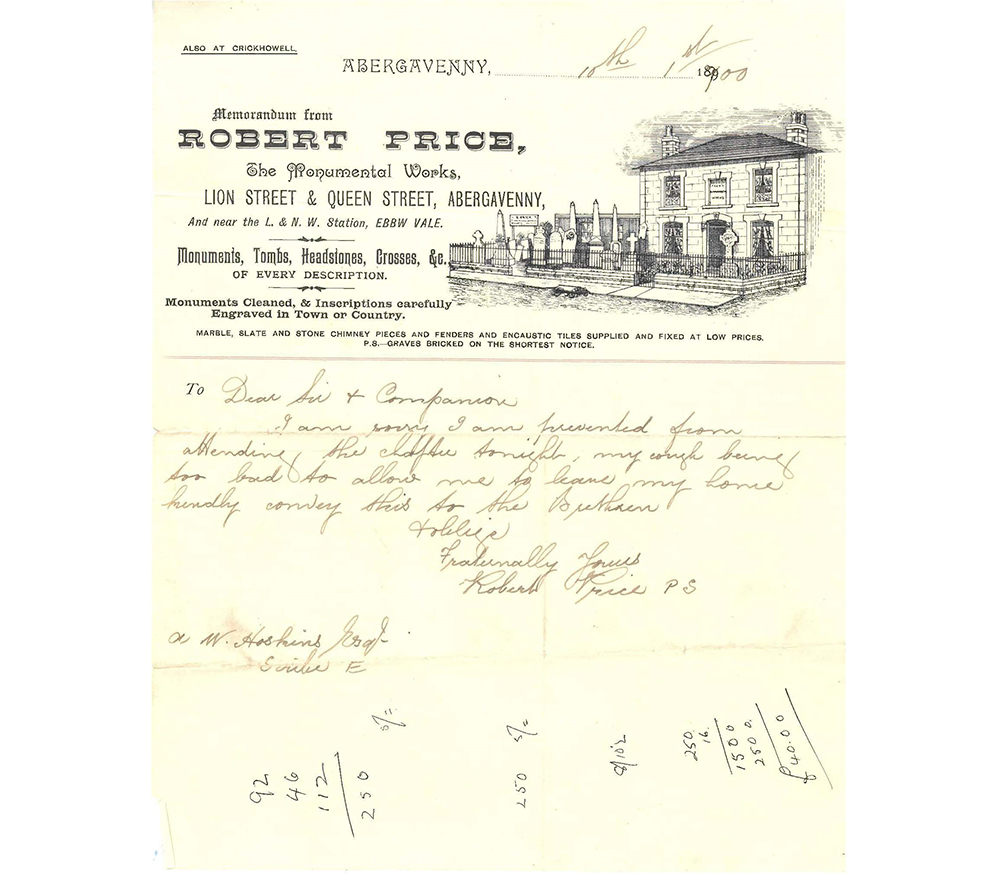 ALSO AT CRICKHOWELL.
ABERGAVENNY, 10th 1st 1900
Memorandum from
ROBERT PRICE,
The Monumental Works,
LION STREET & QUEEN STREET, ABERGAVENNY,
And near the L. & N. W. Station, EBBW VALE.
Monuments, Tombs, Headstones, Crosses, &c.
OF EVERY DESCRIPTION.
Monuments Cleaned, & Inscriptions carefully
Engraved in Town or Country.
MARBLE, SLATE AND STONE CHIMNEY PIECES AND FENDERS AND ENCAUSTIC TILES SUPPLIED AND FIXED AT LOW PRICES.
P.S.—GRAVES BRICKED ON THE SHORTEST NOTICE.
To Dear Sir & Companion
I am sorry I am prevented from
attending the chapter tonight, my cough being
too bad to allow me to leave my home
kindly convey this to the Brethren
& oblige
Fraternally Yours
Robert Price P S
A W. Hoskins Esqr
Scribe E
92
46
112
250
5/=
250 5/=
250
16
1500
2500
£40.00